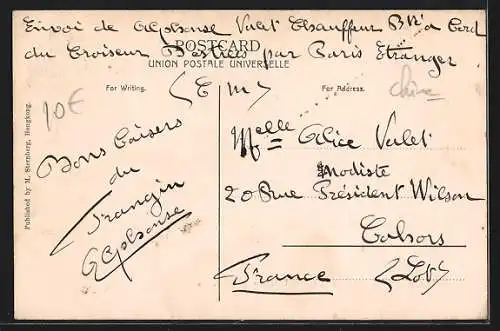 Envoi de Alphonse Valet Chauffeur Bté à bord
du Croiseur par Paris Etranger
POSTCARD
UNION POSTALE UNIVERSELLE
(E m)
For Writing.
For Address.
Chine
10€
Published by M. Sternberg, Hongkong.
Bons baisers
du
Frangin
Alphonse
Melle Alice Valet
Modiste
20 Rue Président Wilson
Cahors
France (Lot)